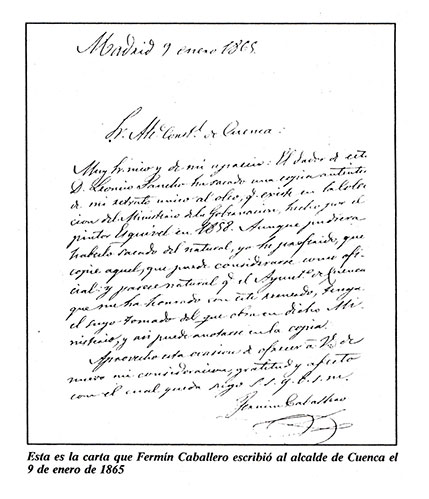 Madrid 9 enero 1865.
Sr. Alc. Constl. de Cuenca:
Muy Sr. mio y de mi aprecio: El dador de esta
D. Leoncio Sancho ha sacado una copia autentica
de mi retrato unico al oleo, q. existe en la Colec
cion del Ministerio de la Gobernacion, hecho por el
pintor Esquivel en 1858. Aunque pudiera
haberlo sacado del natural, yo he preferido, que
copie aquel, que puede considerarse como ofi
cial: y parece natural q. el Ayuntº de Cuenca
que me ha honrado con este acuerdo, tenga
el suyo tomado del que obra en dicho Mi
nisterio, y asi puede anotarse en la copia.
Aprovecho esta ocasion de ofrecer á V. de
nuevo mi consideracion, gratitud y afecto
con el cual queda suyo s. s. q. b. s. m.
Fermin Caballero
Esta es la carta que Fermín Caballero escribió al alcalde de Cuenca el
9 de enero de 1865